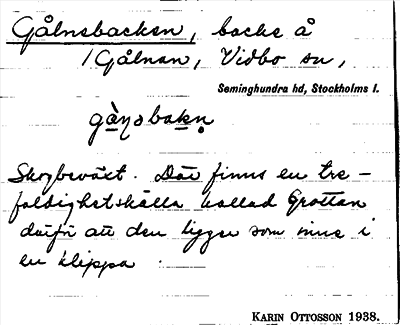 Gålnsbacken, backe å
/Gålnan, Vidbo sn,
Seminghundra hd, Stockholms l.
gà̱ŋsbakn̥
Skogbeväxt. Där finns en tre-
faldighetskälla kallad Grottan
därför att den ligger som inne i
en klippa.
KARIN OTTOSSON 1938.